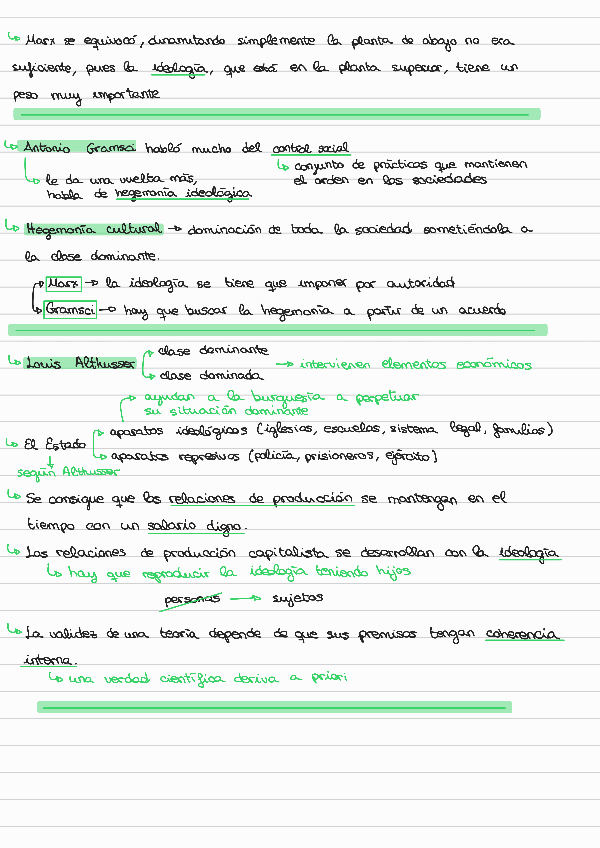 ↳ Marx se equivocó, dinamitando simplemente la planta de abajo no era
suficiente, pues la ideología, que está en la planta superior, tiene un
peso muy importante
↳ Antonio Gramsci habló mucho del control social
↳ conjunto de prácticas que mantienen
el orden en las sociedades
↳ le da una vuelta más,
habla de hegemonía ideológica
↳ Hegemonía cultural → dominación de toda la sociedad sometiéndola a
la clase dominante.
Marx → la ideología se tiene que imponer por autoridad
Gramsci → hay que buscar la hegemonía a partir de un acuerdo
↳ Louis Althusser
clase dominante
clase dominada
→ intervienen elementos económicos
ayudan a la burguesía a perpetuar
su situación dominante
↳ El Estado
aparatos ideológicos (iglesias, escuelas, sistema legal, familias)
aparatos represivos (policía, prisioneros, ejército)
según Althusser
↳ Se consigue que las relaciones de producción se mantengan en el
tiempo con un salario digno.
↳ Las relaciones de producción capitalista se desarrollan con la ideología
↳ hay que reproducir la ideología teniendo hijos
personas → sujetos
↳ La validez de una teoría depende de que sus premisas tengan coherencia
interna.
↳ una verdad científica deriva a priori